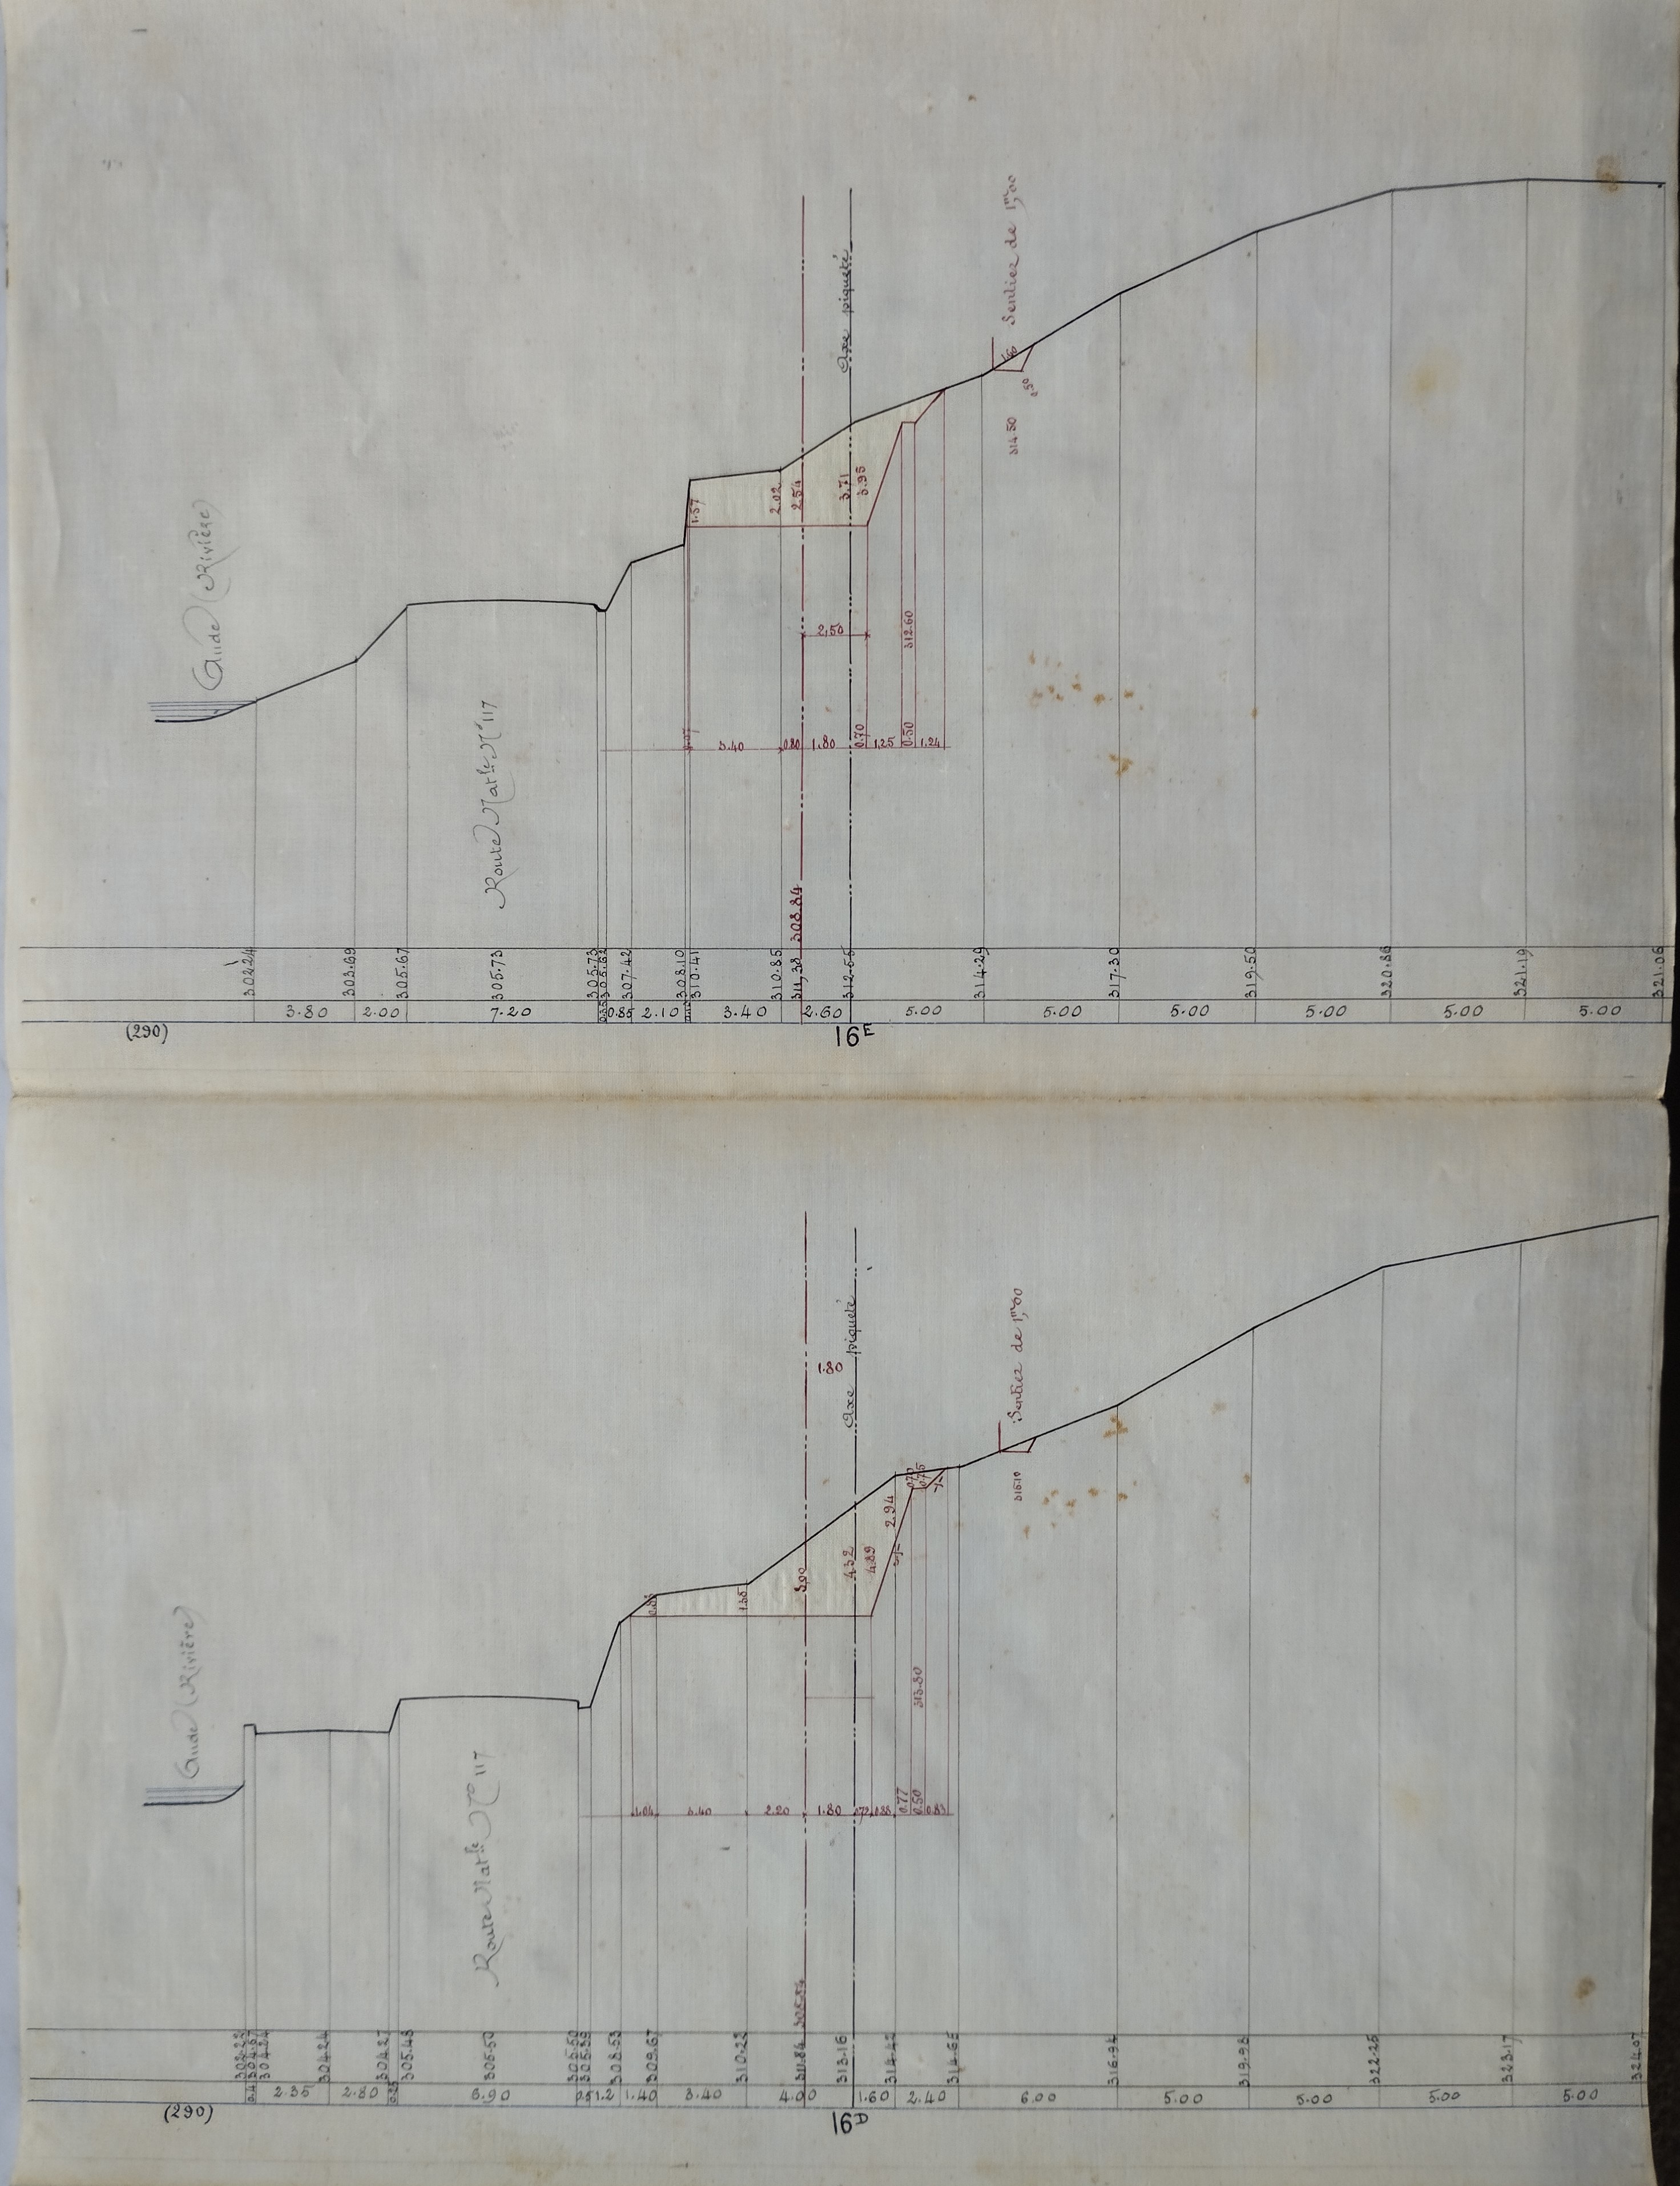 Aude (Rivière)
Route Natle No 117
Axe piqueté
Sentier de 1m,00
1.00
0.50
314.50
1.57
2.02
2.54
3.71
3.95
2,50
312.60
3.40
0.80
1.80
0.70
1.25
0.50
1.24
308.84
302.24
303.69
305.67
305.73
305.73
307.42
308.10
310.41
310.85
311,38
312.55
314.29
317.30
319.50
320.86
321.19
321.06
3.80
2.00
7.20
0.85
2.10
3.40
2.60
5.00
5.00
5.00
5.00
5.00
5.00
(290)
16E
Aude (Rivière)
Route Natle No 117
Axe piqueté
1.80
Sentier de 1m,00
0.83
1.38
3,00
4.32
4.89
2.94
313.80
1.04
3.40
2.20
1.80
0.77
0.50
0.83
308.84
302.22
304.67
304.24
304.24
304.27
305.48
305.50
305.50
308.53
309.67
310.22
311.84
313.16
314.42
314.65
316.94
319.98
322.25
323.17
324.07
2.35
2.80
6.90
1.2
1.40
3.40
4.00
1.60
2.40
6.00
5.00
5.00
5.00
5.00
(290)
16D